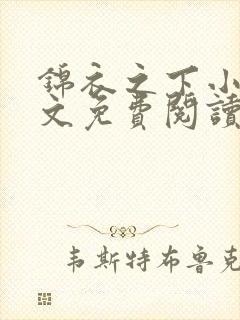 錦衣之下小
文免費閱讀
韦斯特布鲁克